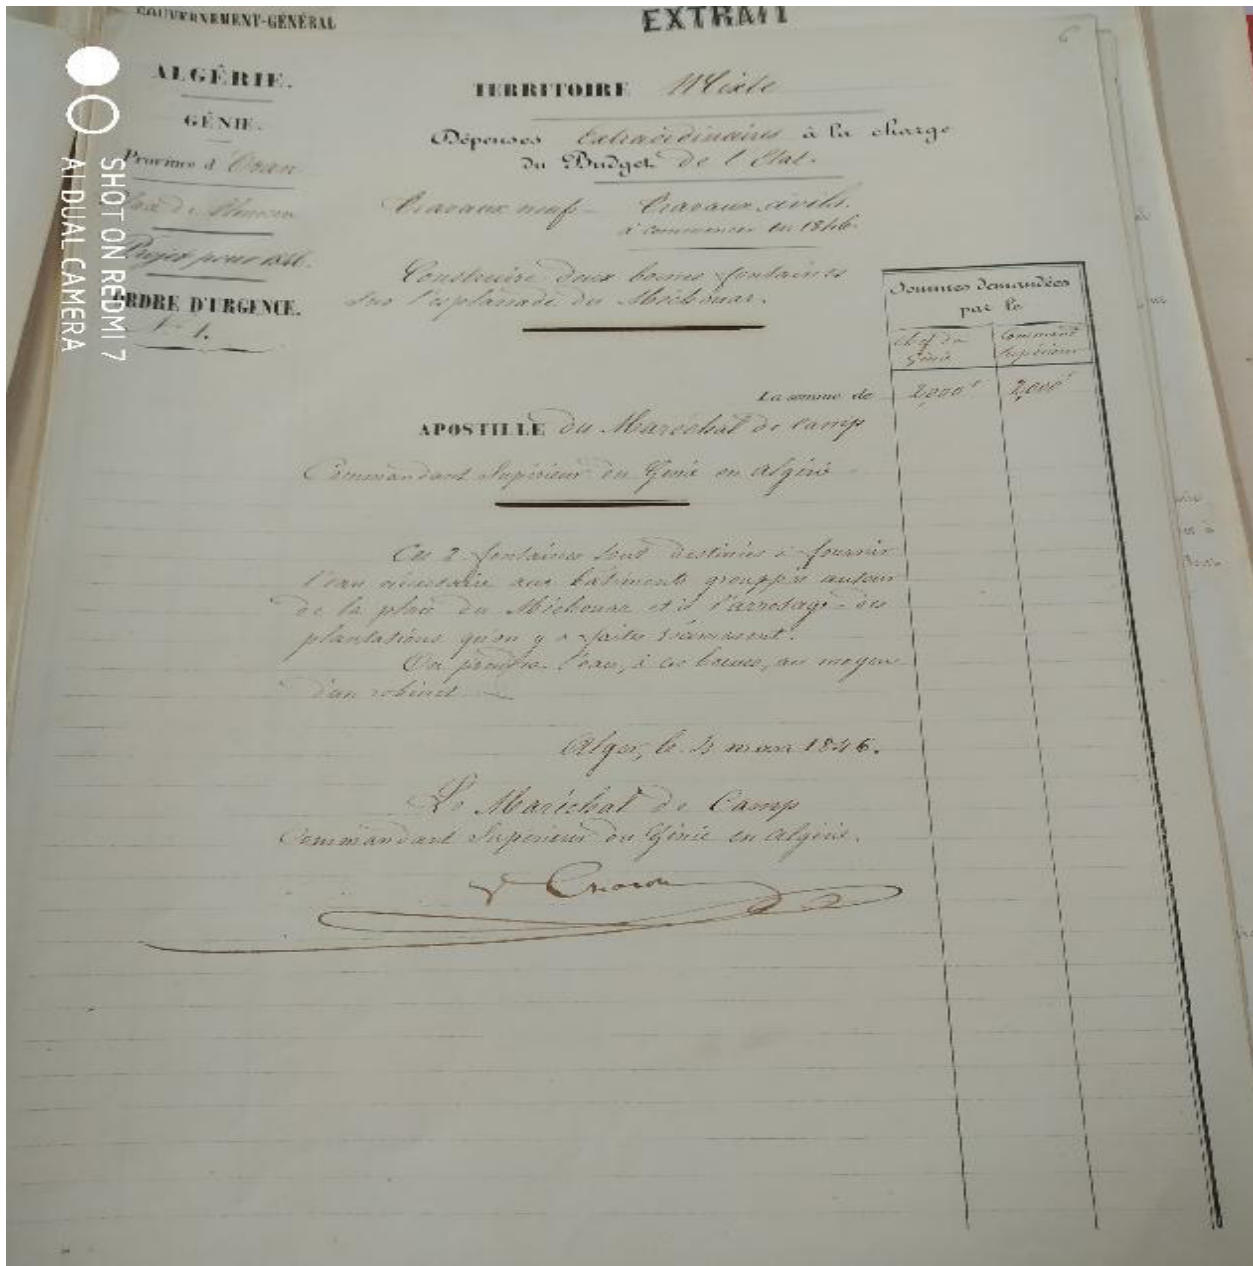 GOUVERNEMENT-GÉNÉRAL
EXTRAIT
6
ALGÉRIE.
GÉNIE.
Province d'Oran
Place de Tlemcen
Projet pour 1846.
ORDRE D'URGENCE.
N° 1.
TERRITOIRE Mixte
Dépenses Extraordinaires à la charge
du Budget de l'Etat.
Travaux neufs - Travaux civils.
à commencer en 1846.
Construire deux bornes-fontaines
sur l'esplanade du Méchouar.
Sommes demandées
par le
Chef du
Génie
Command.t
Supérieur
La somme de 2,000f 2,000f
APOSTILLE du Maréchal de Camp
Commandant Supérieur du Génie en Algérie
Ces 2 fontaines sont destinées à fournir
l'eau nécessaire aux bâtiments grouppés autour
de la place du Méchouar et à l'arrosage des
plantations qu'on y a faites récemment.
On prendra l'eau, à ces bornes, au moyen
d'un robinet.
Alger, le mars 1846.
Le Maréchal de Camp
Commandant Supérieur du Génie en Algérie.
Charon
SHOT ON REDMI 7
AI DUAL CAMERA